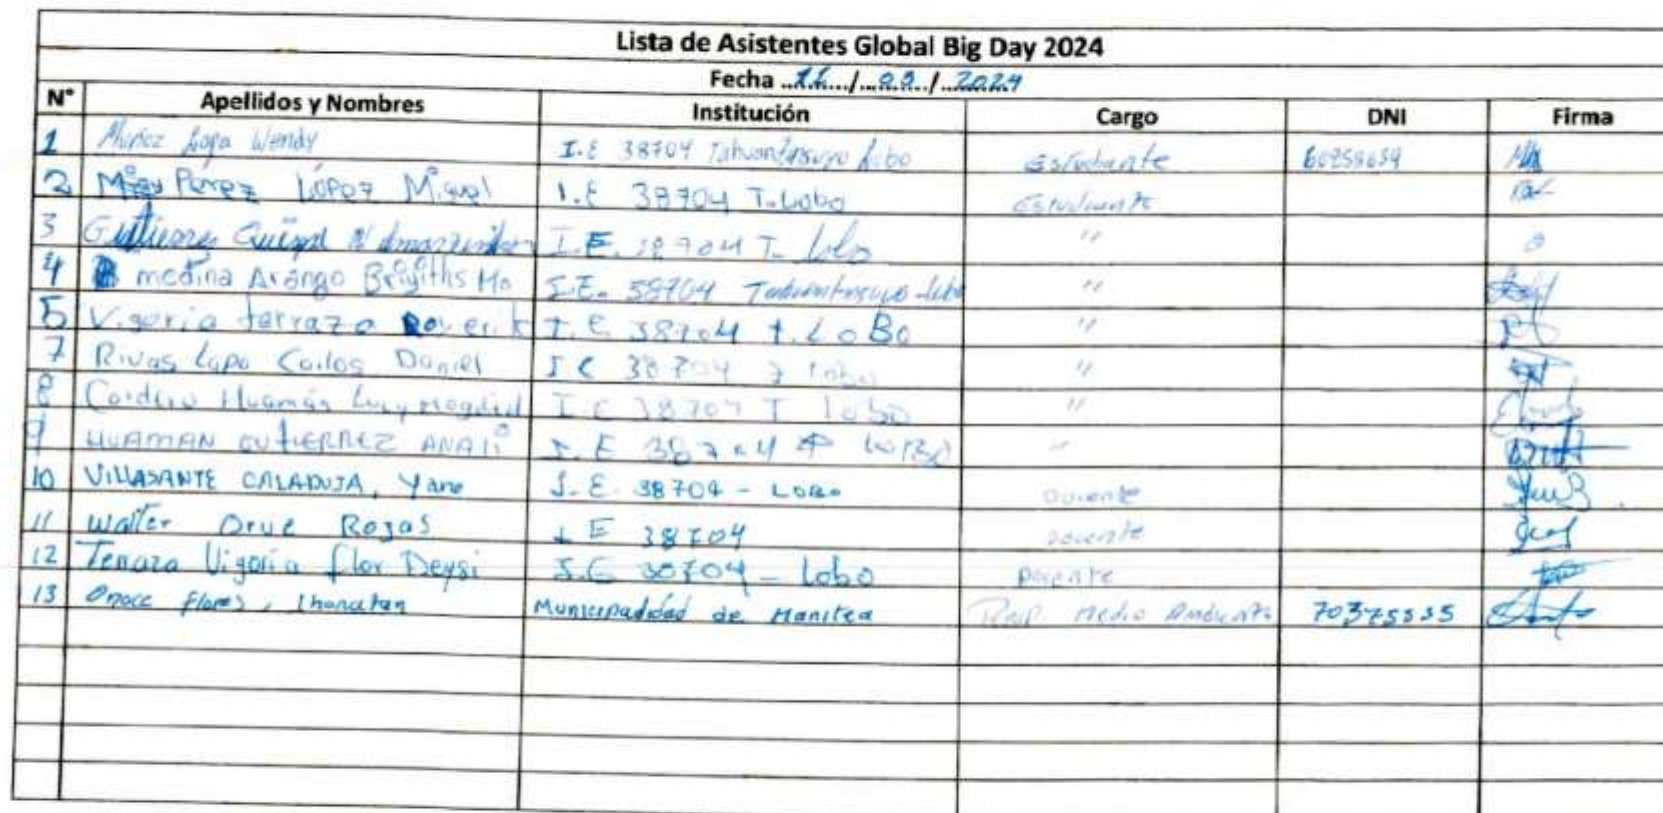 Lista de Asistentes Global Big Day 2024
Fecha ...11..../...../...2024
N° Apellidos y Nombres Institución Cargo DNI Firma
1 Muñoz Lapa Wendy I.E 38704 Tahuantinsuyo Lobo Estudiante
2 Perez López Miguel I.E 38704 T. Lobo Estudiante
3 I.E. 38704 T. Lobo "
4 medina Arango I.E. 38704 Tahuantinsuyo-Lobo "
5 Vigoria terrazo I.E 38704 T. LoBo "
7 Rivas Lapa Carlos Daniel I E 38704 Lobo "
8 Cordero Huamán I.E 38704 T lobo "
9 HUAMAN GUTIERREZ ANALI I.E 38704 LOBO "
10 VILLASANTE CALADUJA, Yane I.E. 38704 - Lobo Docente
11 Walter Orue Rojas I E 38704 Docente
12 Terrazo Vigoria flor Deysi I.E 38704 - Lobo Docente
13 Onocc Flores, Jhonatan Municipalidad de Manitea Resp. Medio Ambiente